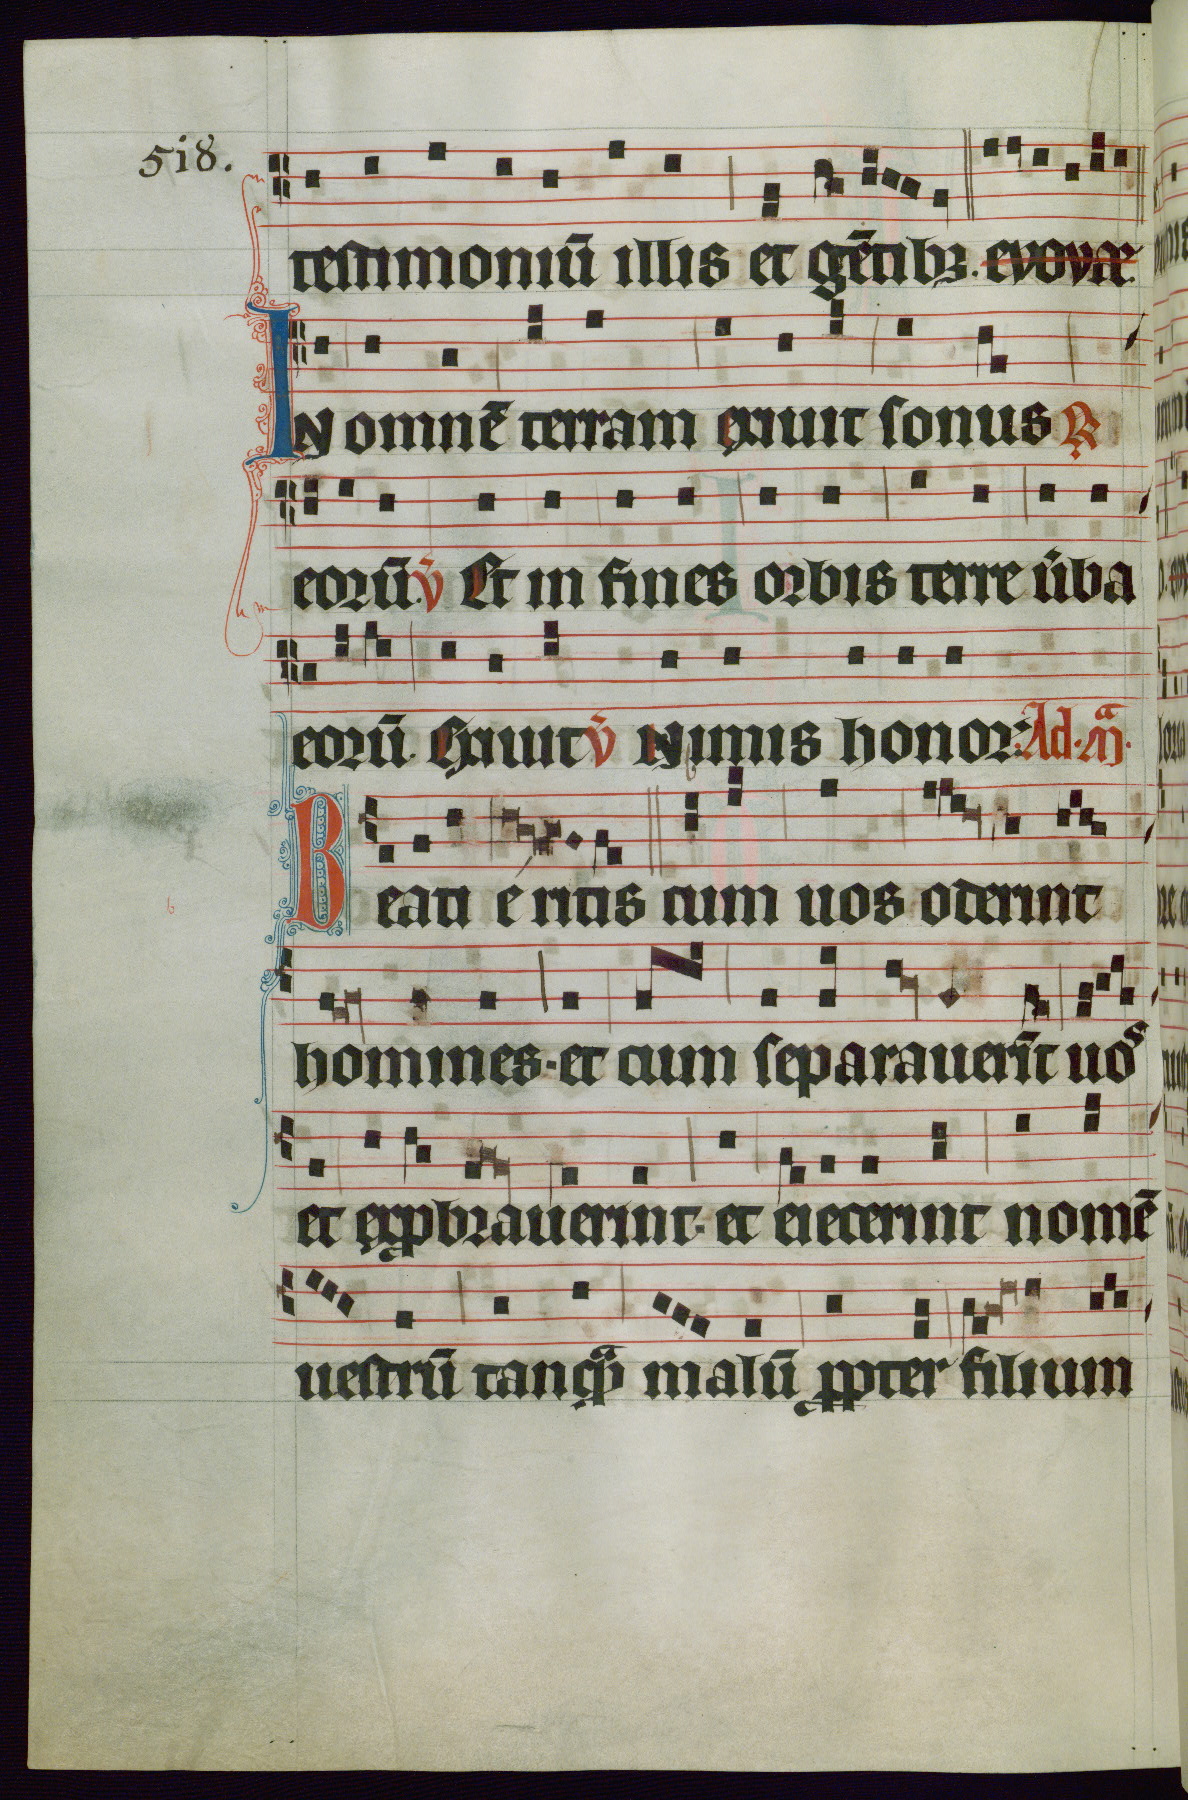 518.
testimoniū illis et gētibꝫ. evovae
IN omnē terram exiuit sonus ℟
eorū. v̄ Et in fines orbis terre ūba
eorū. Exiuit v̄ Nimis honor. Ad. m̄a.
Beati eritis cum uos oderint
homines. et cum separauerīt uos
et exꝓbrauerint. et eiecerint nomē
uestrū tanqᷓ malū ꝓpter filium